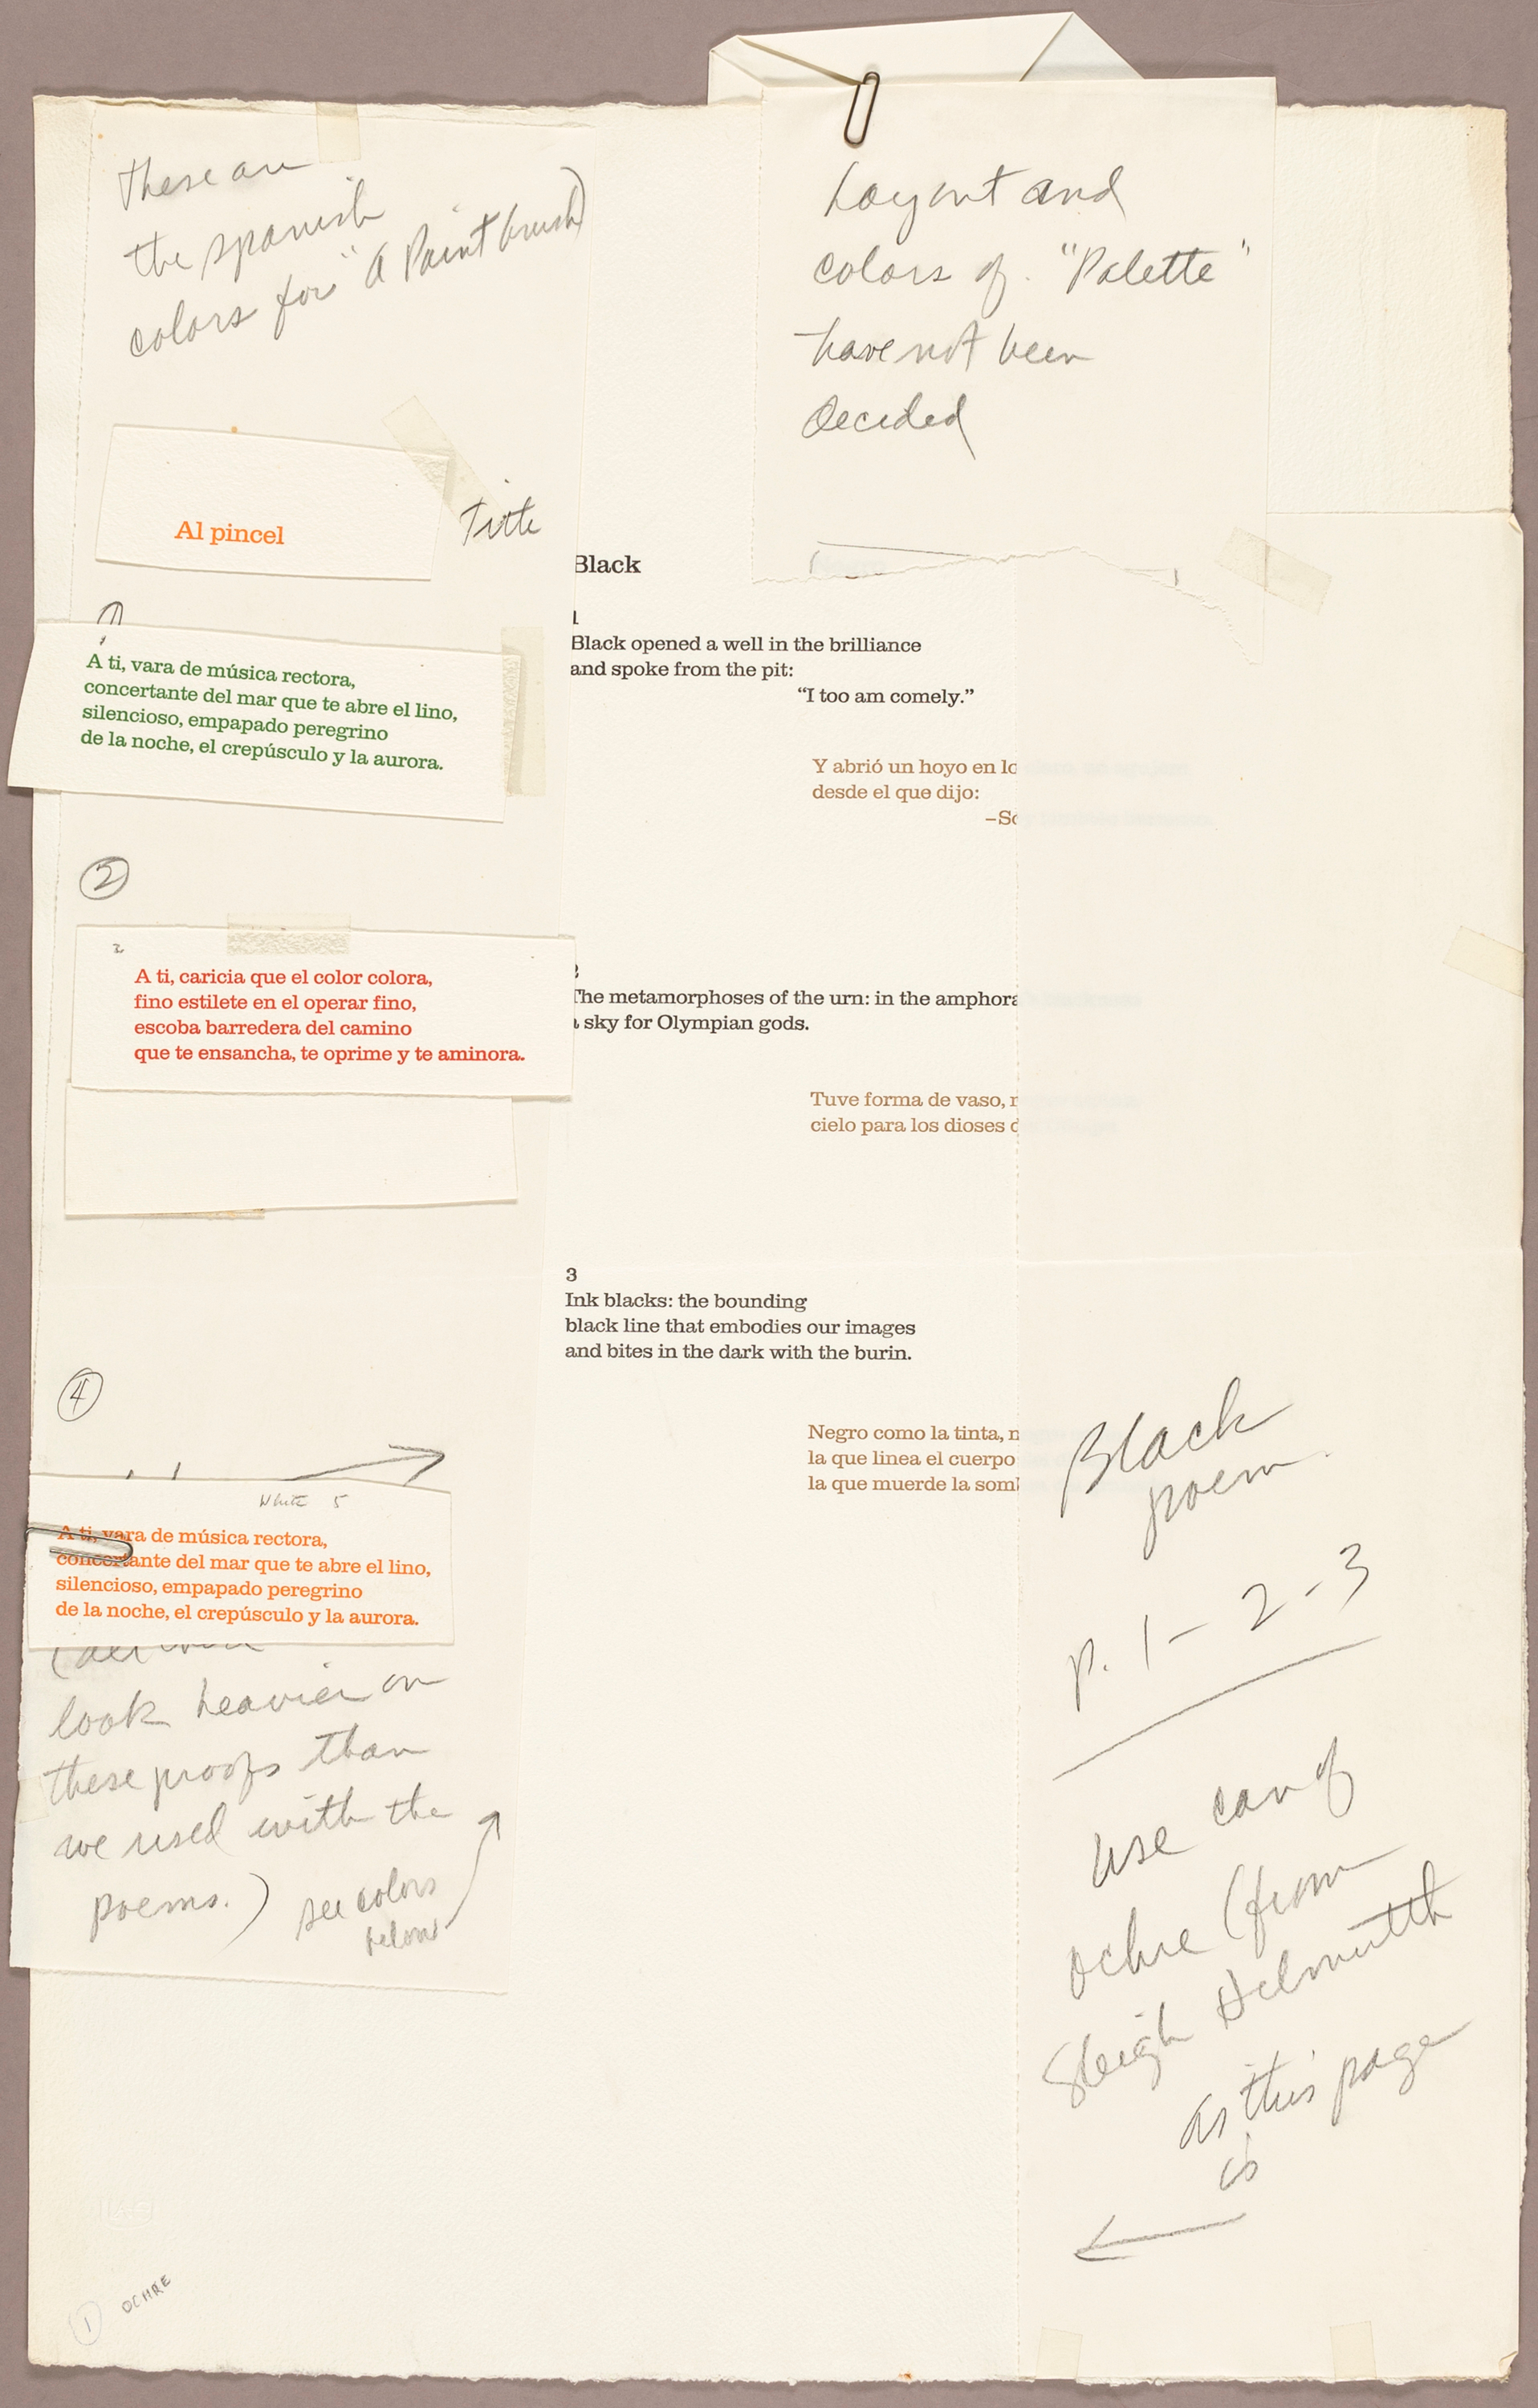 these are
the spanish
colors for "A Paintbrush"
Al pincel
Title
A ti, vara de música rectora,
concertante del mar que te abre el lino,
silencioso, empapado peregrino
de la noche, el crepúsculo y la aurora.
2
2
A ti, caricia que el color colora,
fino estilete en el operar fino,
escoba barredera del camino
que te ensancha, te oprime y te aminora.
4
White 5
A ti, vara de música rectora,
concertante del mar que te abre el lino,
silencioso, empapado peregrino
de la noche, el crepúsculo y la aurora.
look heavier on
these proofs than
we used with the
poems.)
see colors
below
1 OCHRE
Layout and
colors of "Palette"
have not been
decided
Black
1
Black opened a well in the brilliance
and spoke from the pit:
"I too am comely."
Y abrió un hoyo en lo
desde el que dijo:
–So
2
The metamorphoses of the urn: in the amphora
a sky for Olympian gods.
Tuve forma de vaso, n
cielo para los dioses d
3
Ink blacks: the bounding
black line that embodies our images
and bites in the dark with the burin.
Negro como la tinta, n
la que linea el cuerpo
la que muerde la som
Black
poem
p. 1 - 2 - 3
use can of
ochre (from
Sleigh Helmuth
as this page
is